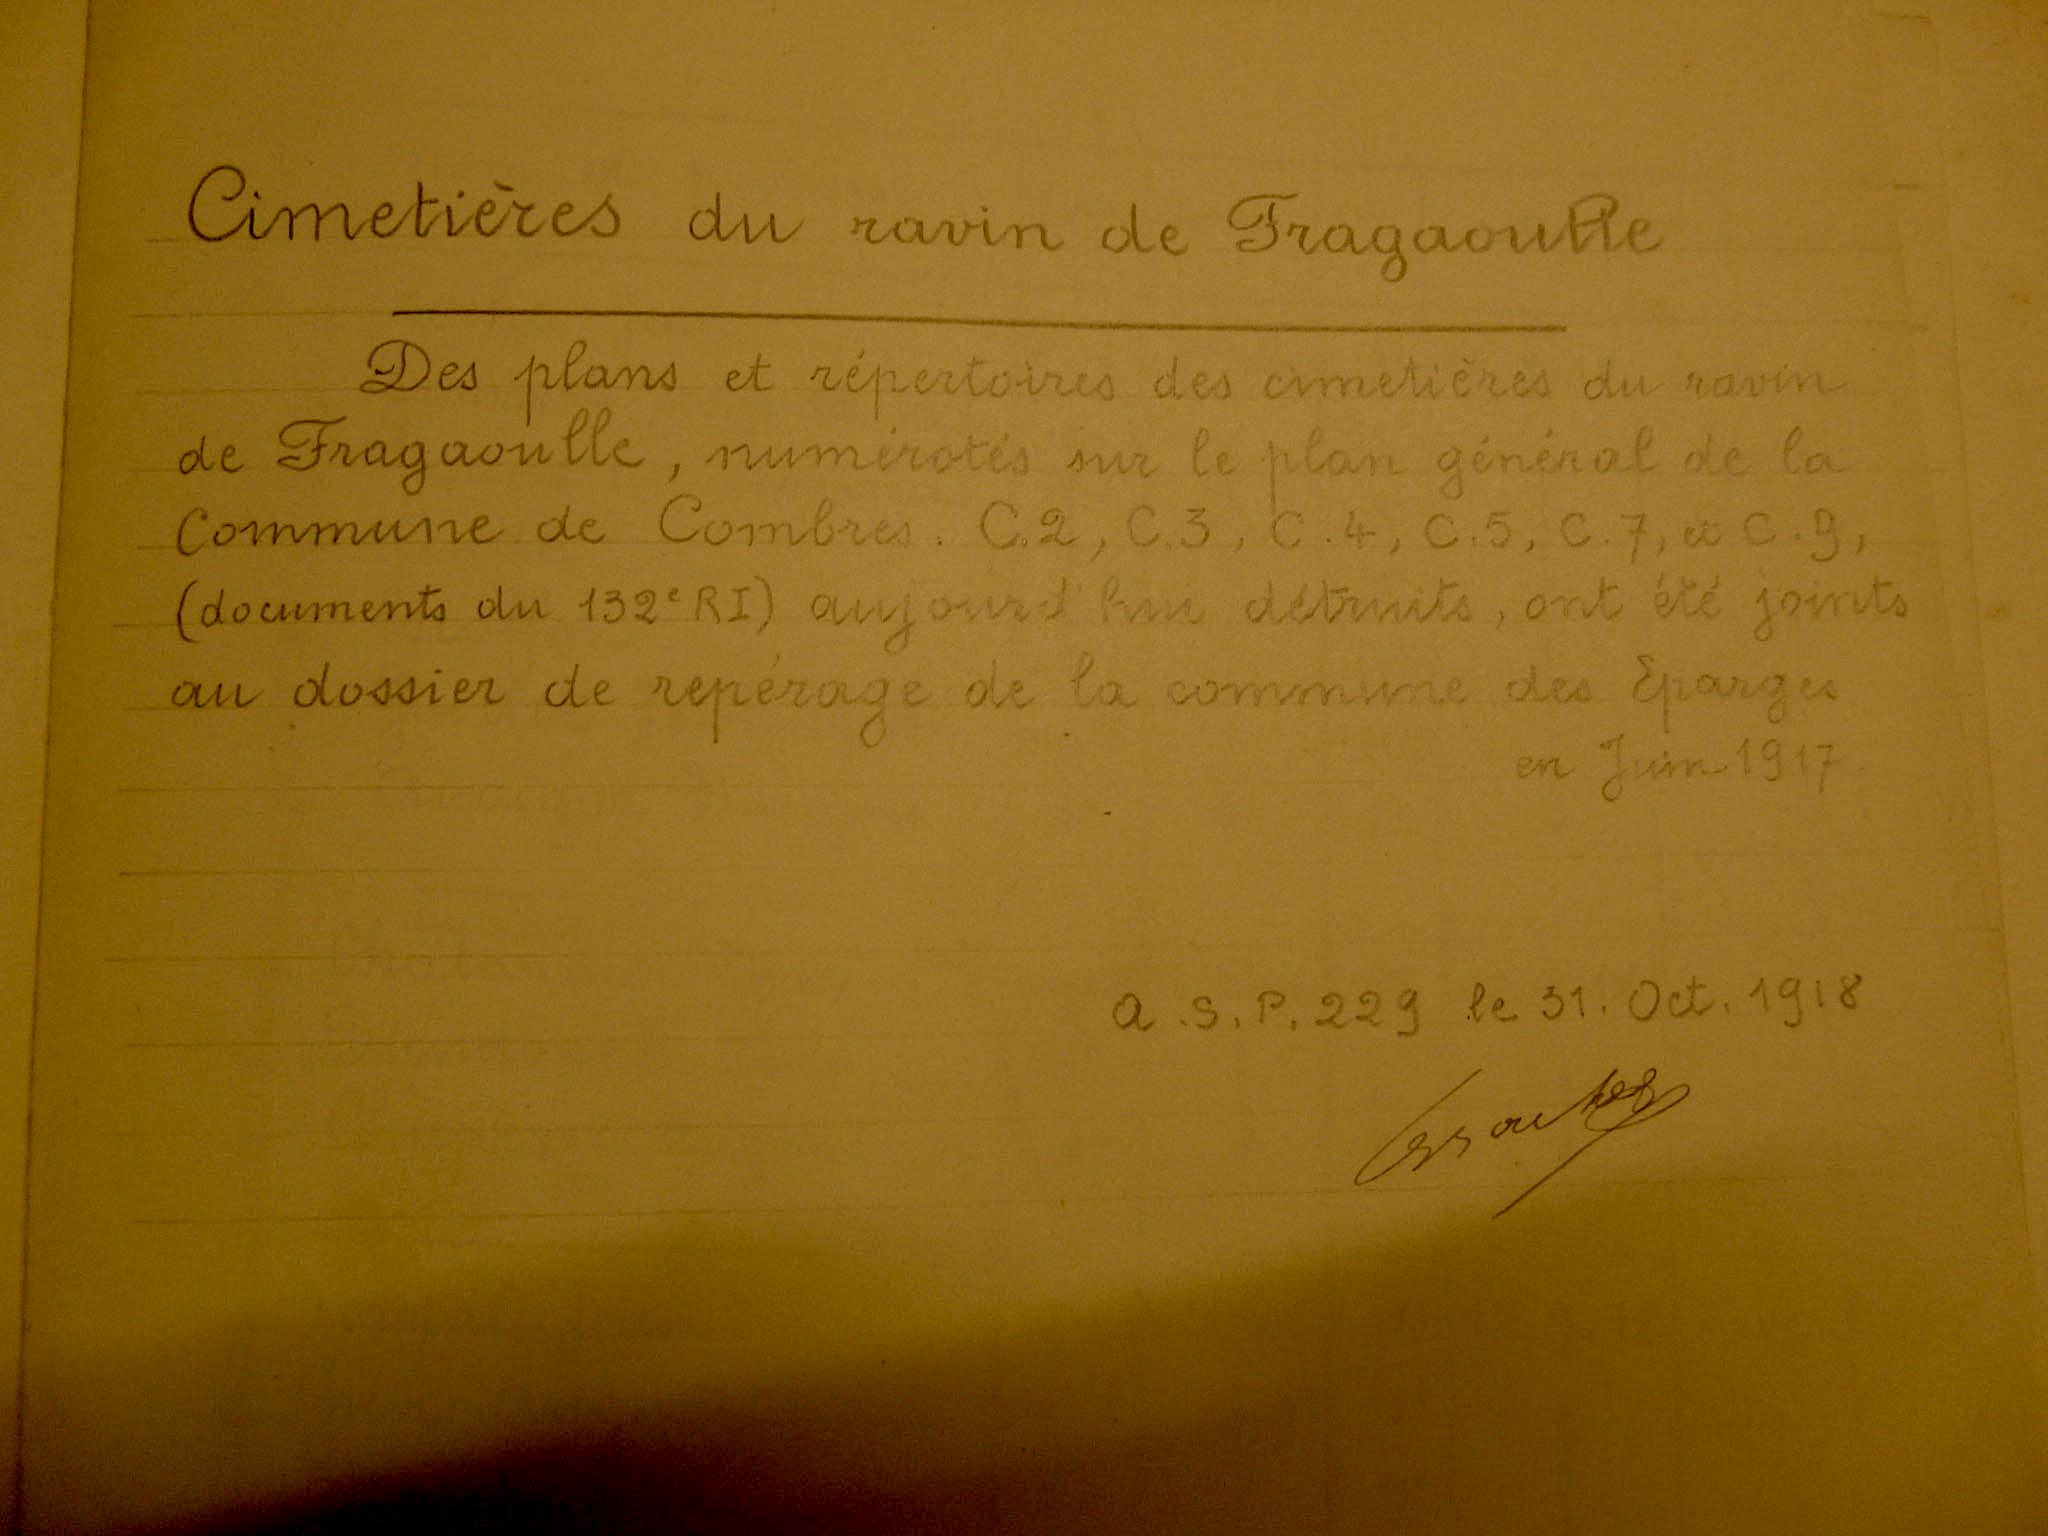 Cimetières du ravin de Fragaoulle
Des plans et répertoires des cimetières du ravin
de Fragaoulle, numérotés sur le plan général de la
Commune de Combres. C.2, C.3, C.4, C.5, C.7, et C.9,
(documents du 132e RI) aujourd'hui détruits, ont été joints
au dossier de repérage de la commune des Eparges
en Juin 1917
a.S.P. 229 le 31. Oct. 1918